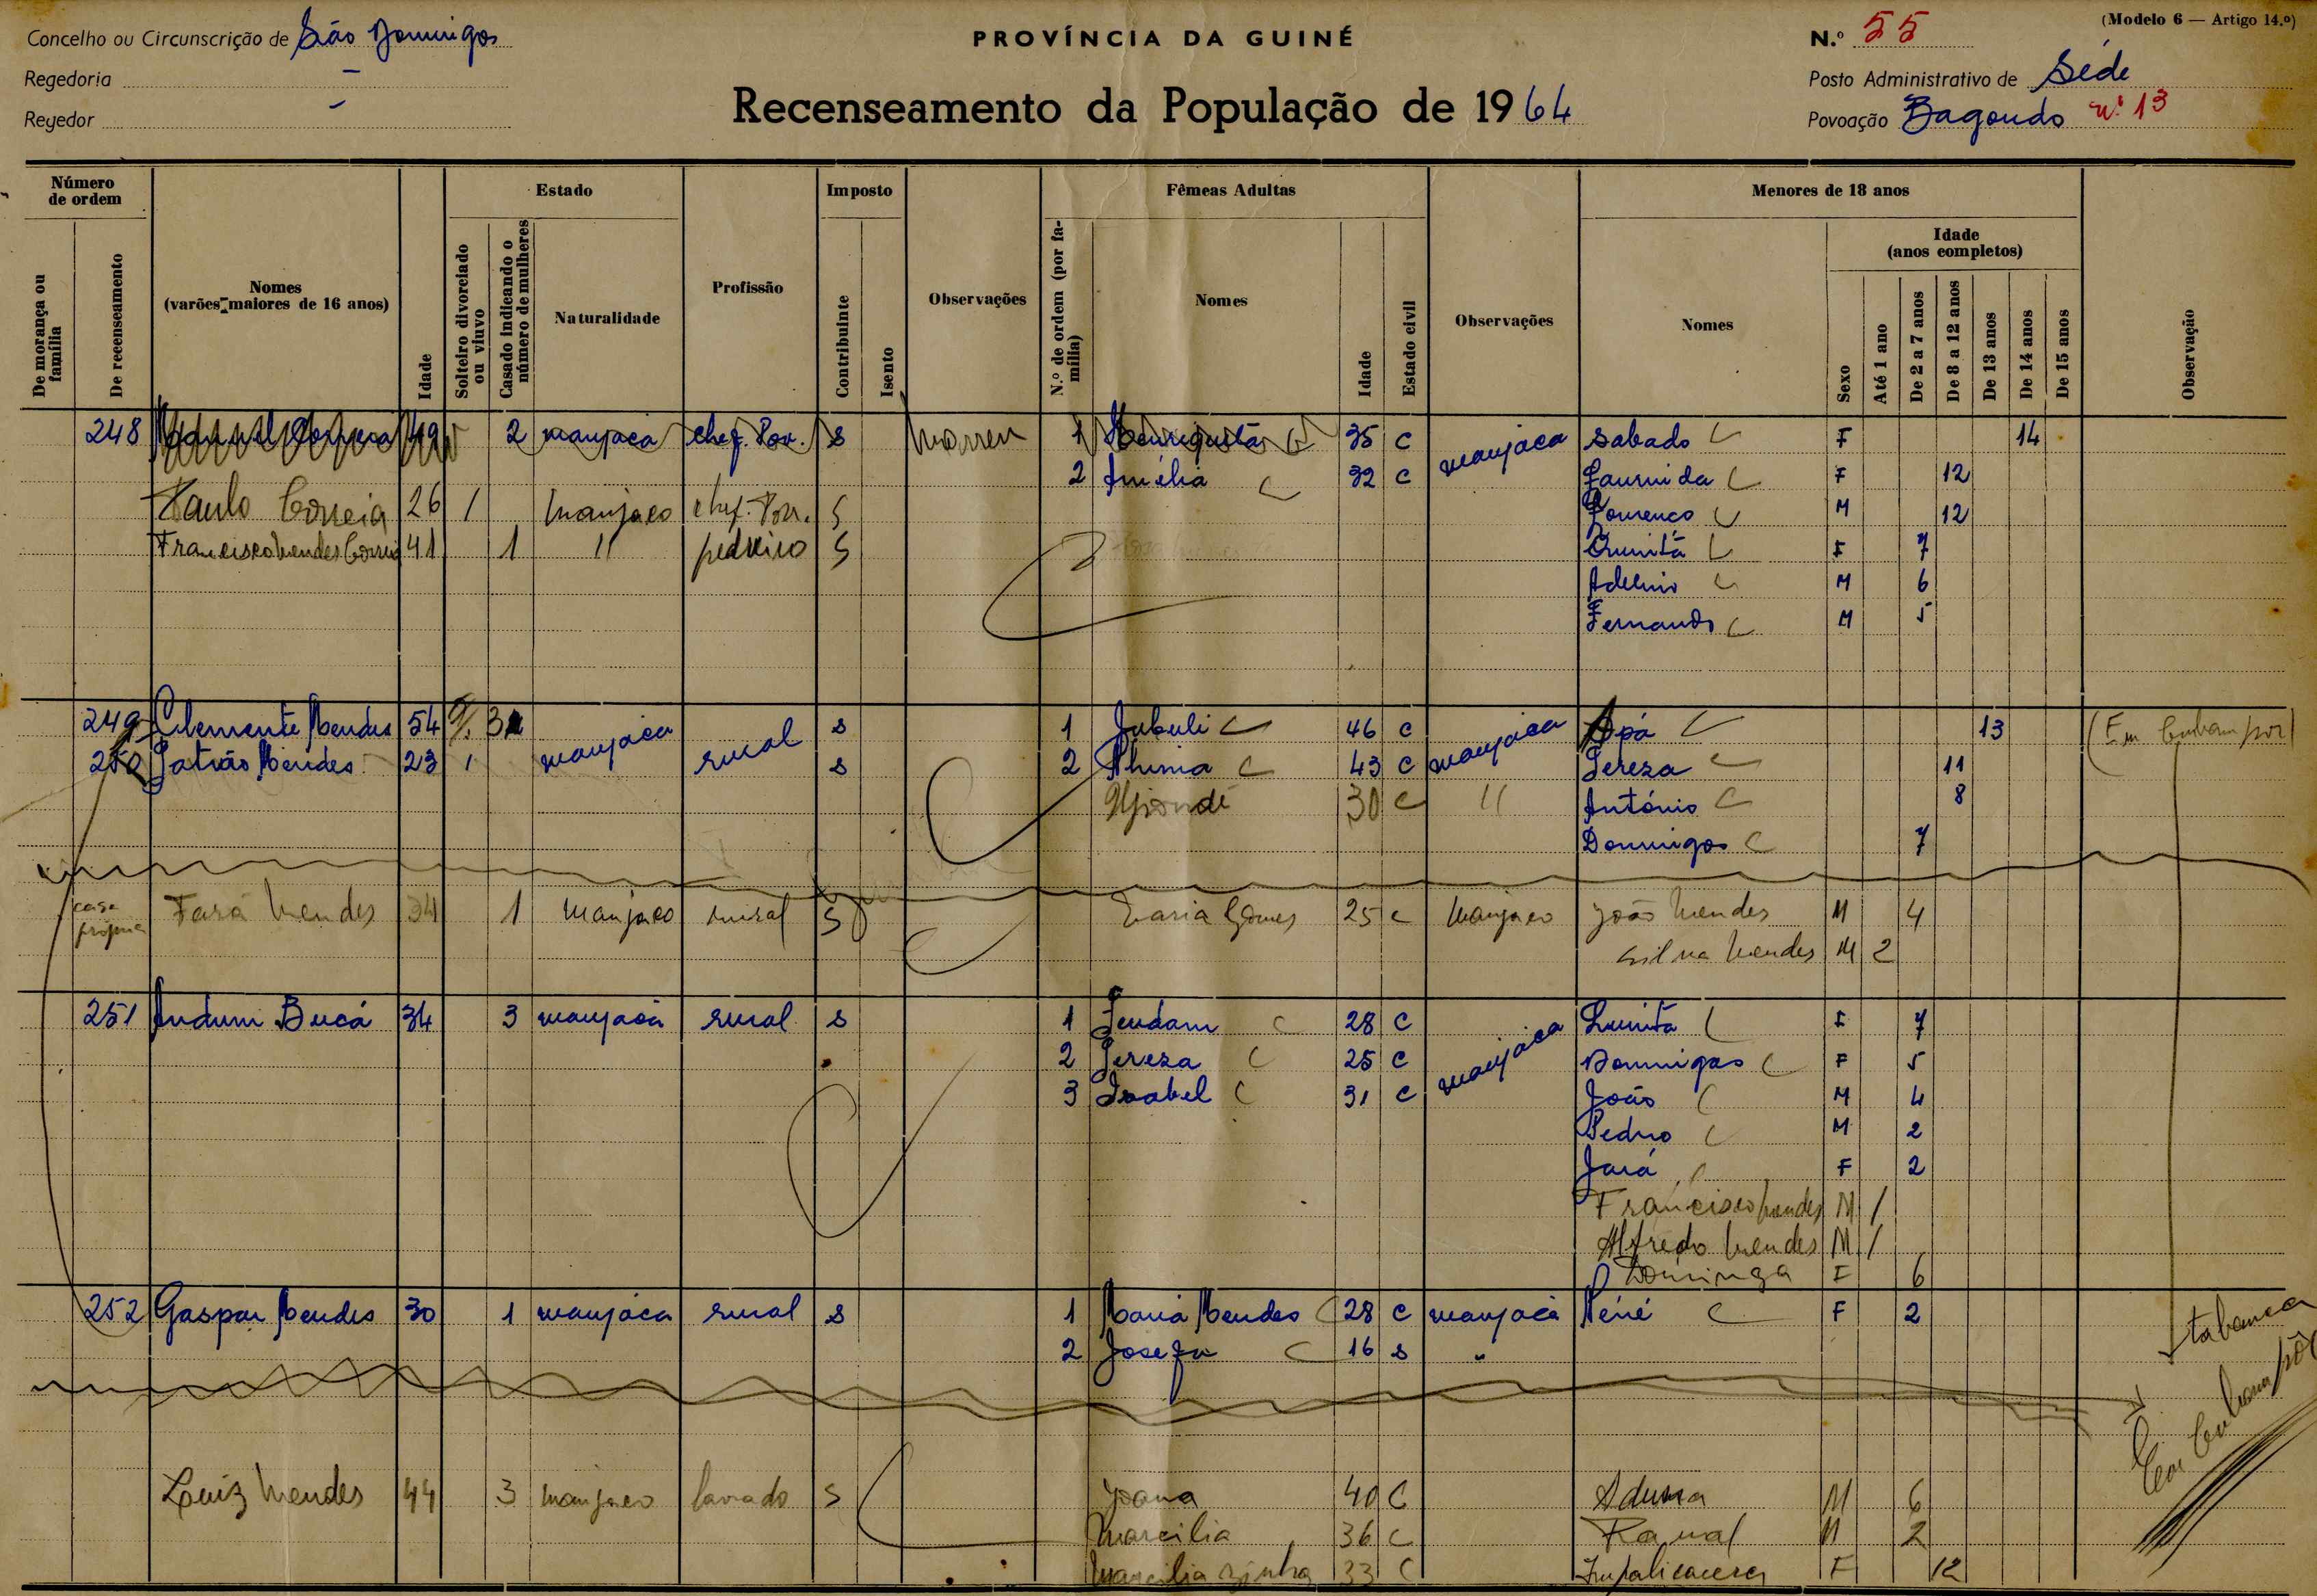 (Modelo 6 — Artigo 14.º)
Concelho ou Circunscrição de São Domingos
PROVÍNCIA DA GUINÉ
N.º 55
Regedoria –
Posto Administrativo de Séde
Regedor –
Recenseamento da População de 1964
Povoação Bagondo Nº 13
Número de ordem
Estado
Imposto
Fêmeas Adultas
Menores de 18 anos
De morança ou família
De recenseamento
Nomes (varões maiores de 16 anos)
Idade
Solteiro divorciado ou viuvo
Casado indicando o número de mulheres
Naturalidade
Profissão
Contribuinte
Isento
Observações
N.º de ordem (por família)
Nomes
Idade
Estado civil
Observações
Nomes
Sexo
Idade (anos completos)
Até 1 ano
De 2 a 7 anos
De 8 a 12 anos
De 13 anos
De 14 anos
De 15 anos
Observação
248 2 manjaca chef. Pov. s morreu 1 Henriqueta 35 c manjaca Sabado F 14
2 Amélia 32 c F 12
Paulo Correia 26 1 manjaco chef. Pov. S Lourenço M 12
Francisco Mendes Correia 41 1 " pedreiro S Quinta F 7
Adelino M 6
Fernando M 5
249 Clemente Mendes 54 3 manjaca rural s 1 Jubuli 46 c manjaca Apá 13
250 Patrão Mendes 23 1 s 2 43 c Tereza 11
30 c " António 8
Domingos 7
casa própria Fará Mendes 34 1 manjaco rural S Maria Gomes 25 c manjaco João Mendes M 4
Silva Mendes M 2
251 Indum Bucá 34 3 manjaca rural s 1 Tendam 28 c manjaca Quinta F 7
2 Tereza 25 c Domingas F 5
3 Isabel 31 c João M 4
Pedro M 2
Jará F 2
Francisco Mendes M 1
Alfredo Mendes M 1
Dominga F 6
252 Gaspar Mendes 30 1 manjaca rural s 1 Maria Mendes 28 c manjaca Néné F 2
2 Josefa 16 s "
tabanca
Luiz Mendes 44 3 manjaco lavrado S Joana 40 C M 6
Marcilia 36 C M 2
Marcilia zinha 33 C F 12